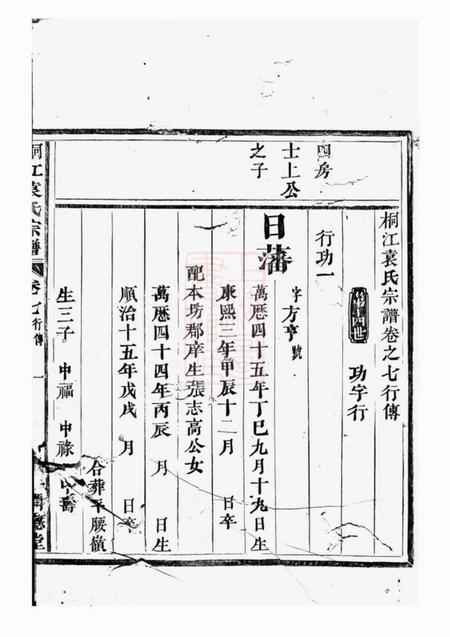 桐江袁氏宗譜卷之七行傳
功字行
行功一
四房
士上公
之子
日藩
字方亨 號
萬曆四十五年丁巳九月十九日生
康熙三年甲辰十二月 日卒
配本坊郡庠生張志高公女
萬曆四十四年丙辰 月 日生
順治十五年戊戌 月 日卒
合葬平腰嶺
生三子 申福 申祿 申壽
桐江袁氏宗譜
卷七 行傳 一